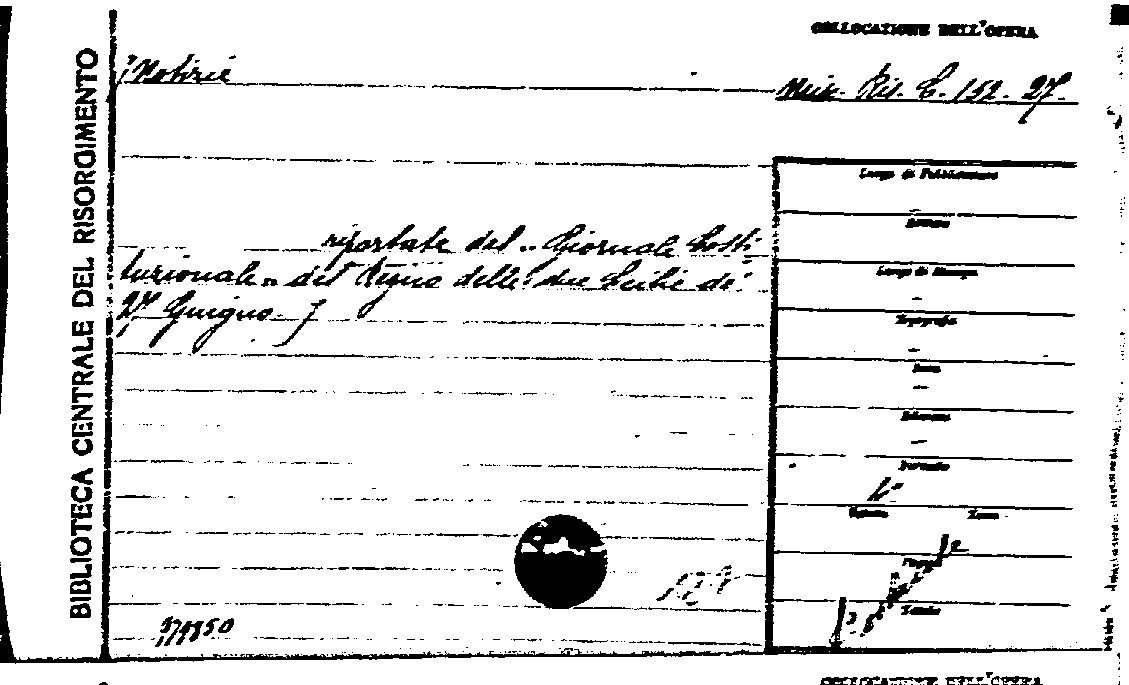 BIBLIOTECA CENTRALE DEL RISORGIMENTO
COLLOCAZIONE DELL'OPERA
Notizie
Misc. Ris. C. 152. 27.
riportate del „ Giornale Costi
tuzionale „ del Regno delle due Sicilie de'
27 Guigno. 7
Luogo di Pubblicazione
Editore
Luogo di Stampa
Tipografia
Data
Edizione
Formato
Volume Tomo
Pagine
Tavole
COLLOCAZIONE DELL'OPERA